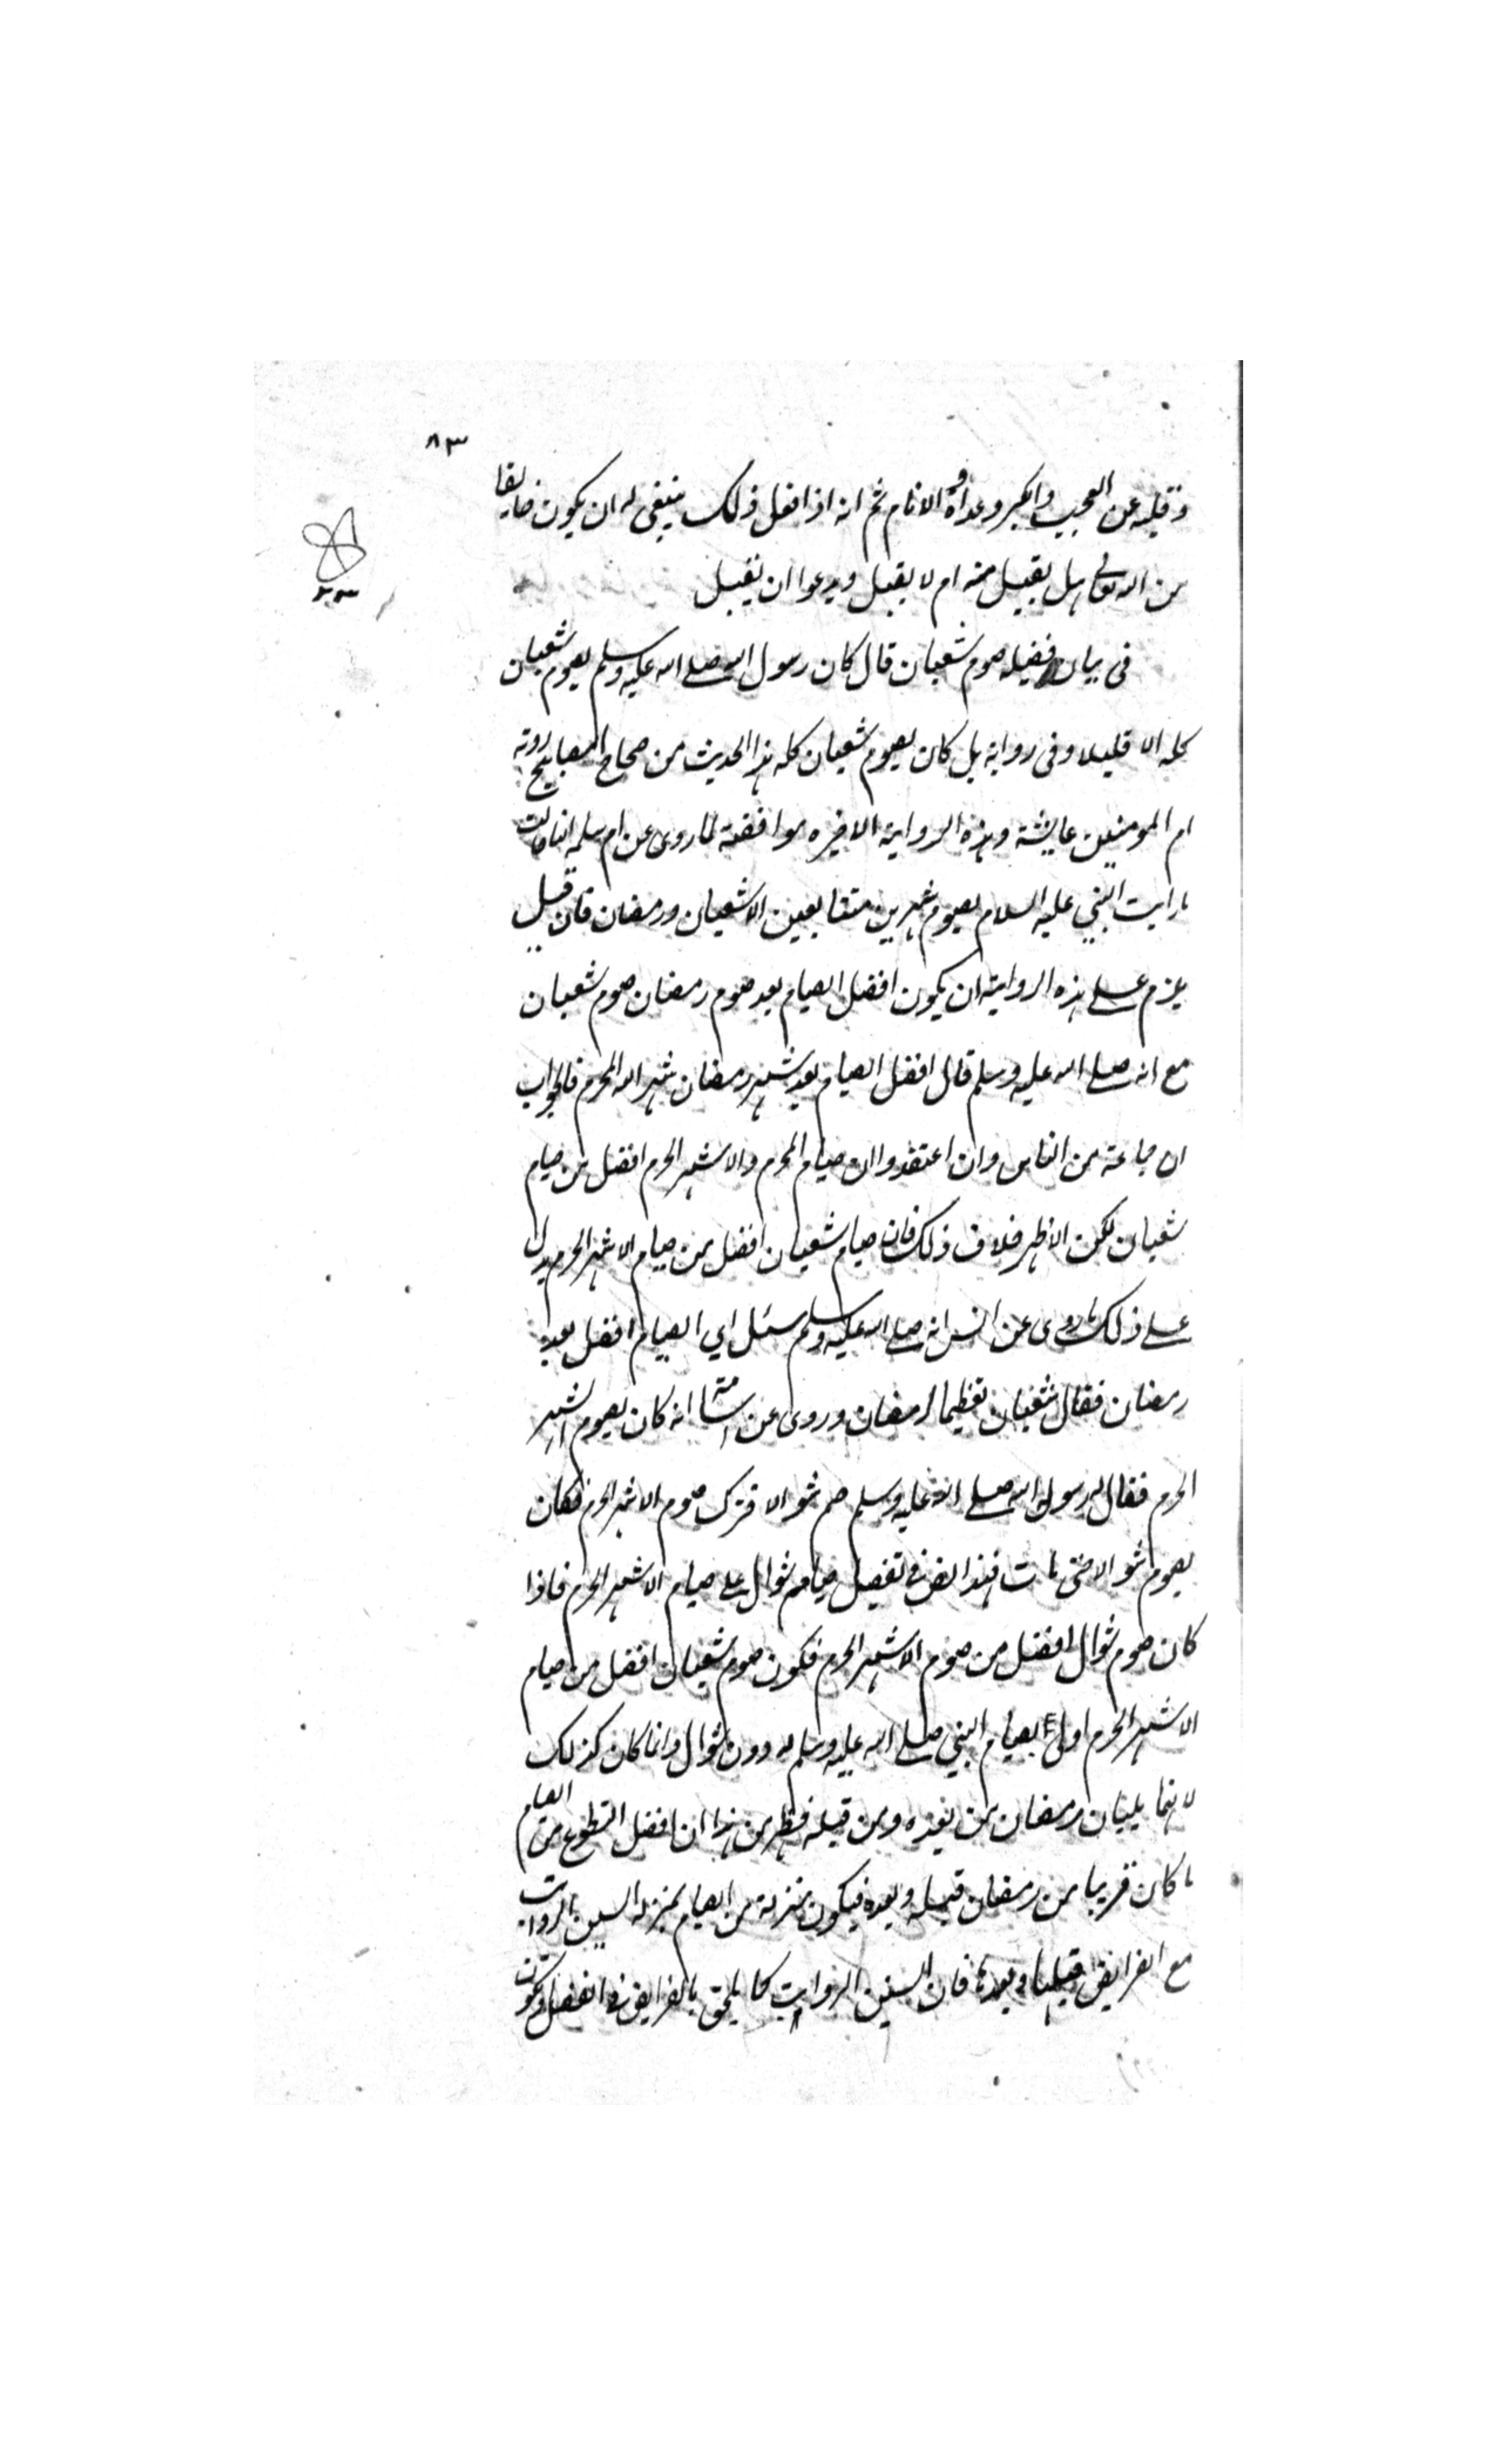 ٨٣
وقلبه عن العجب والكبر وعداوة الانام ثم انه اذا فعل ذلك ينبغى له ان يكون خايفا
من الله تعالى هل يقبل منه ام لا يقبل ويدعوا ان يقبل
فى بيان فضيله صوم شعبان قال كان رسول الله صلے الله عليه وسلم يصوم شعبان
كله الا قليلا وفى رواية بل كان يصوم شعبان كله هذا الحديث من صحاح المصابيح روته
ام المومنين عايشة وهذه الرواية الاخيره موافقة لما روى عن ام سلمه انها قالت
ما رايت النبي عليه السلام يصوم شهرين متتابعين الا شعبان ورمضان فان قيل
يلزم علے هذه الرواية ان يكون افضل الصيام بعد صوم رمضان صوم شعبان
مع انه صلے الله عليه وسلم قال افضل الصيام بعد شهر رمضان شهر الله المحرم فالجواب
ان جماعة من الناس وان اعتقدوا ان صيام المحرم والاشهر الحرم افضل من صيام
شعبان لكن الاظهر خلاف ذلك فان صيام شعبان افضل من صيام الاشهر الحرم يدل
علے ذلك ما روى عن انس انه صلے الله عليه وسلم سئل اي الصيام افضل بعد
رمضان فقال شعبان تعظيما لرمضان وروى عن اسامة انه كان يصوم اشهر
الحرم فقال له رسول الله صلے الله عليه وسلم صم شوالا فترك صوم الاشهر الحرم فكان
يصوم شوالا حتى مات فهذا نص فى تفضيل صيام شوال على صيام الاشهر الحرم فاذا
كان صوم شوال افضل من صوم الاشهر الحرم فكون صوم شعبان افضل من صيام
الاشهر الحرم اولى بصيام النبي صلے الله عليه وسلم له دون شوال وانما كان كذلك
لانهما يليان رمضان من بعده ومن قبله فظهر من هذا ان افضل التطوع من الصيام
ما كان قريبا من رمضان قبله وبعده فيكون منزلته من الصيام بمنزلة السنن الرواتب
مع الفرايض قبلها وبعدها فان السنن الرواتب كما يلحق بالفرايض فى الفضل وتكون